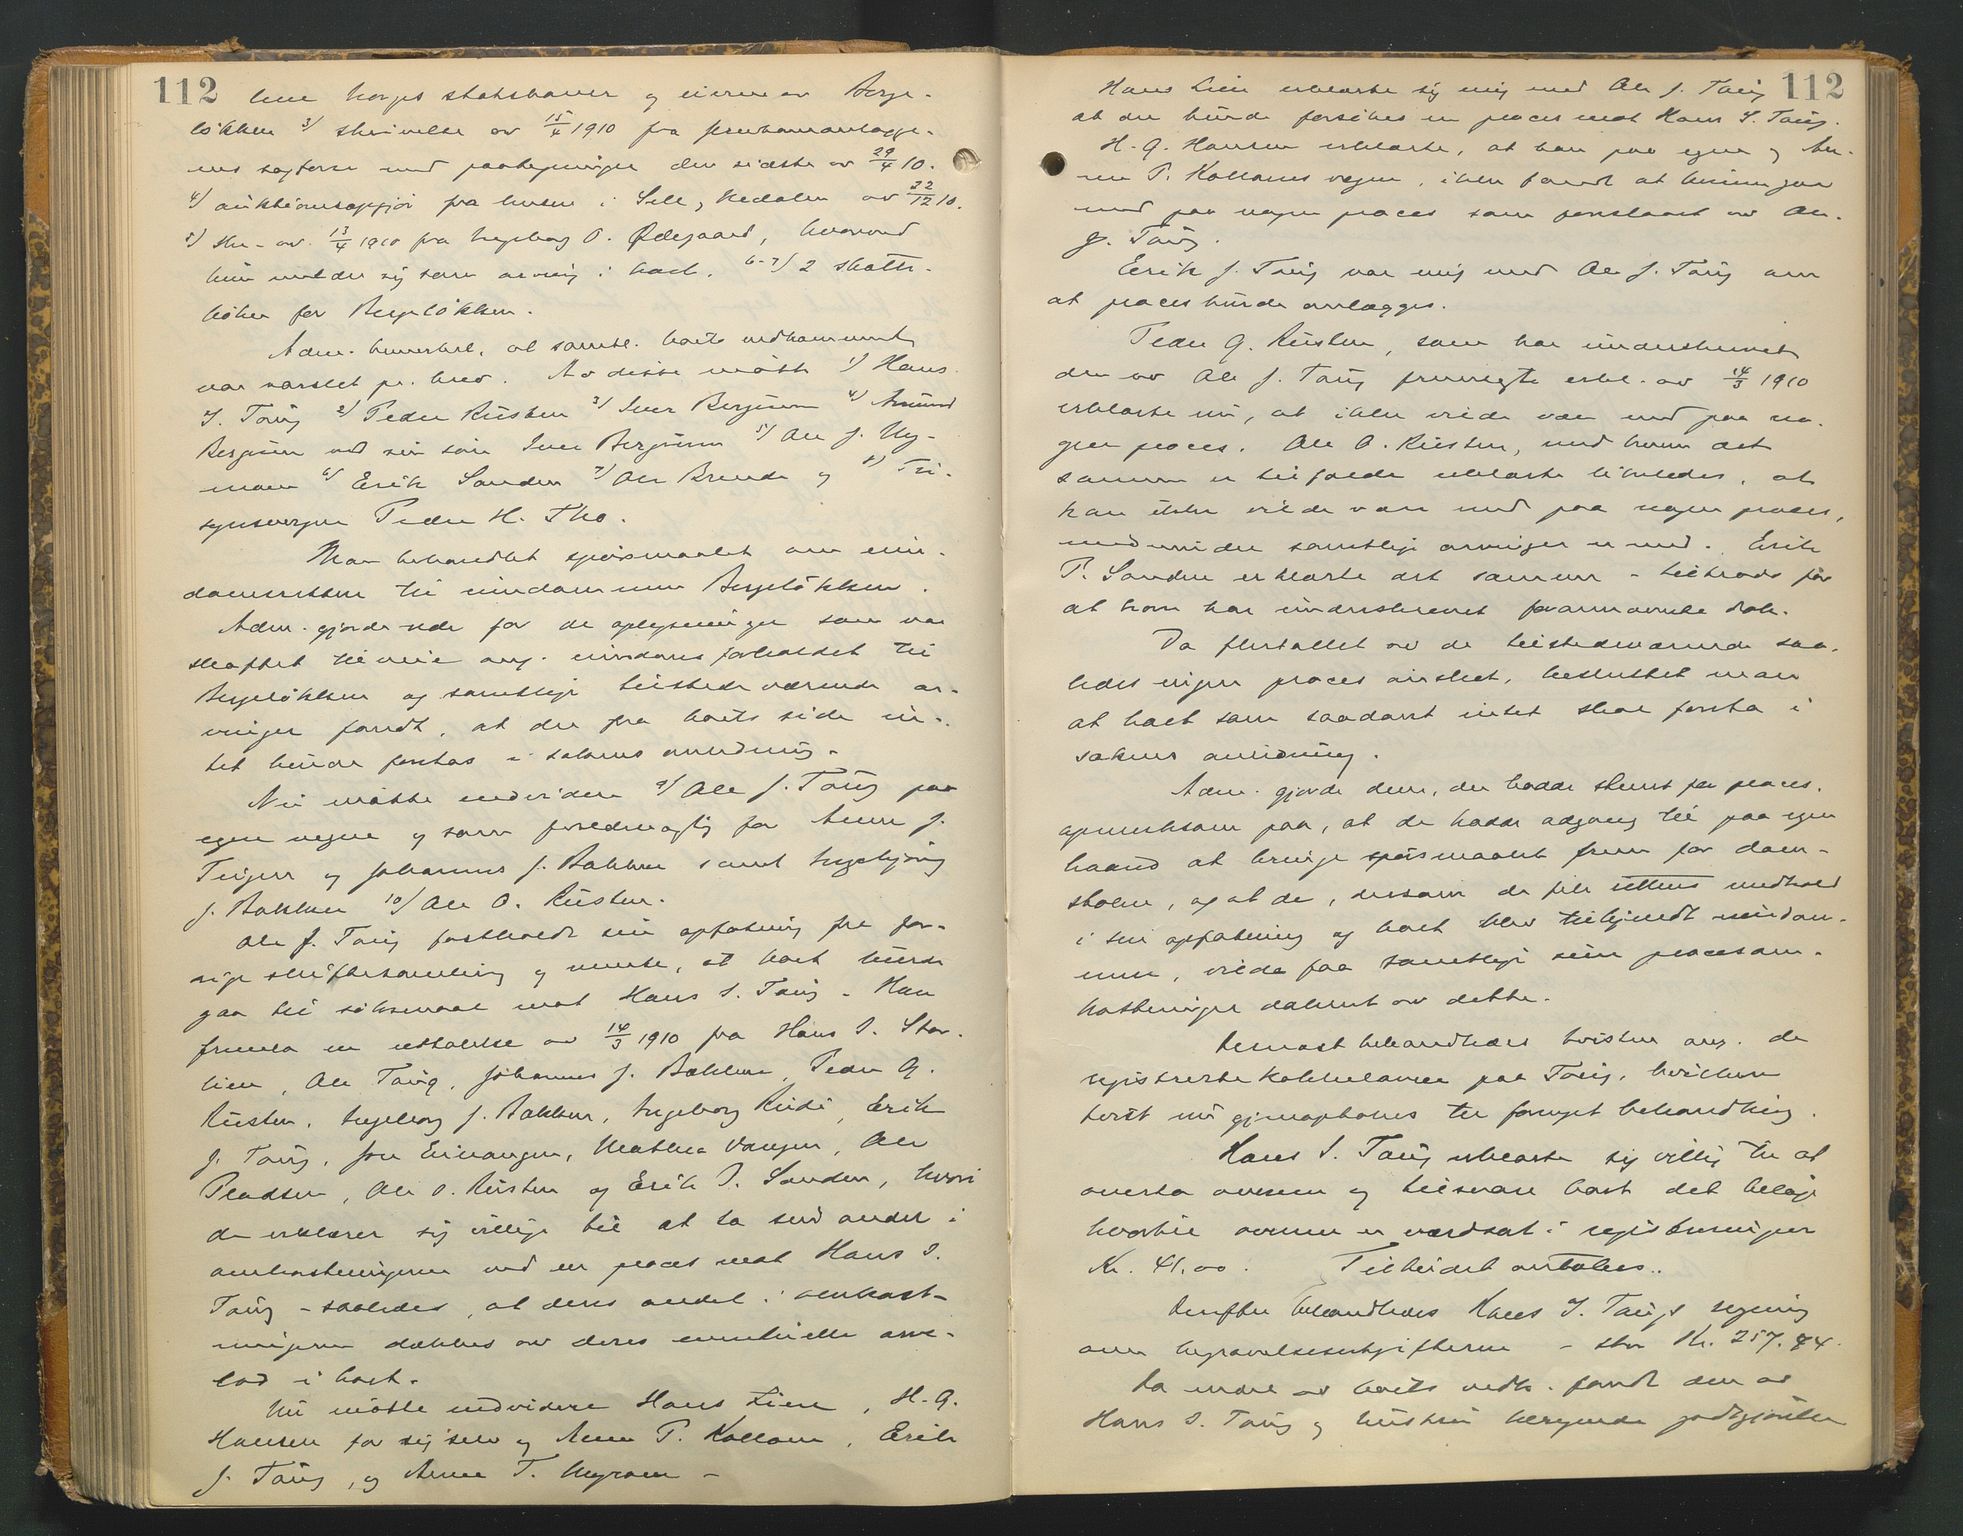 112
lem Norges statsbaner og eieren av Berge-
løkken 3/ skrivelse av 15/4 1910 fra jernbaneanlægge-
nes sagfører med paategninger den sidste av 29/4 10.
4/ auktionsopgjør fra lensm. i Sell, Hedalen av 22/12 10.
5/ skr. av 13/4 1910 fra Ingeborg O. Ødegaard, hvorved
hun melder sig som arving i boet. 6-7/ 2 skatte-
bøker for Bergeløkken.
Adm. bemerket, at samtl. boets vedkommende
var varslet pr. brev. Av disse møtte 1/ Hans
I. Taug 2/ Peder Rusten 3/ Iver Bergum 4/ Amund
Bergum ved sin søn Iver Bergum 5/ Ole J. Ny-
moen 6/ Erik Sanden 7/ Ole Brende og 8/ Til-
synsvergen Peder H. Tho.
Man behandlet spørsmaalet om eien-
domsretten til eiendommen Bergeløkken.
Adm. gjorde rede for de oplysninger som var
skaffet tilveie ang. eiendomsforholdet til
Bergeløkken og samtlige tilstedeværende ar-
vinger fandt, at der fra boets side in-
tet burde foretas i sakens anledning.
Nu møtte endvidere 9/ Ole J. Taug paa
egne vegne og som fuldmægtig for Anne J.
Teigen og Johannes J. Bakken samt Ingebjørg
J. Bakken 10/ Ole O. Rusten.
Ole J. Taug fastholdt sin opfatning fra for-
rige skiftesamling og mente, at boet burde
gaa til søksmaal mot Hans I. Taug. Han
fremla en uttalelse av 14/3 1910 fra Hans I. Stor-
lien, Ole Taug, Johannes J. Bakken, Peder G.
Rusten, Ingeborg J. Bakken, Ingeborg Rudi, Erik
J. Taug, Jon Eikangen, Mathea Vangen, Ole
Pladsen, Ole O. Rusten og Erik P. Sanden, hvori
de erklærer sig villige til at ta sin andel i
omkostningerne ved en proces mot Hans I.
Taug - saaledes, at deres andel i omkost-
ningerne dækkes av deres eventuelle arve-
lod i boet.
Nu møtte endvidere Hans Lien, H. G.
Hansen for sig selv og Anne P. Kolloen, Erik
J. Taug, og Anne T. Nymoen -
112
Hans Lien erklærte sig enig med Ole J. Taug
at der burde forsøkes en proces mot Hans I. Taug.
H. G. Hansen erklærte, at han paa egne og An-
ne P. Kolloens vegne, ikke fandt at kunne gaa
med paa nogen proces som foreslaat av Ole
J. Taug.
Erik J. Taug var enig med Ole J. Taug om
at proces burde anlægges.
Peder G. Rusten, som har underskrevet
den av Ole J. Taug fremlagte erkl. av 14/3 1910
erklærte nu, at ikke vilde være med paa no-
gen proces. Ole O. Rusten, med hvem det
samme er tilfælde erklærte likeledes, at
han ikke vilde være med paa nogen proces,
medmindre samtlige arvinger er med. Erik
P. Sanden erklærte det samme - tiltrods for
at han har underskrevet forannævnte dok.
Da flertallet av de tilstedeværende saa-
ledes ingen proces ønsket, besluttet man
at boet som saadant intet skal foreta i
sakens anledning.
Adm. gjorde dem, der hadde stemt for proces,
opmerksom paa, at de hadde adgang til paa egen
haand at bringe spørsmaalet frem for dom-
stolen, og at de, dersom de fik rettens medhold
i sin opfatning og boet blev tilkjendt eiendom-
men, vilde faa samtlige sine procesom-
kostninger dækket av dette.
Dernæst behandledes tvisten ang. de
registrerte kakkelovner paa Taug, hvilken
tvist nu gjenoptokes til fornyet behandling.
Hans I. Taug erklærte sig villig til at
overta ovnene og tilsvare boet det beløp
hvortil ovnene er værdsat i registreringen
Kr. 41.00. Tilbudet antokes.
Derefter behandledes Hans I. Taugs regning
over begravelsesutgifterne - stor Kr. 257.44.
Da endel av boets vedk. fandt den av
Hans I. Taug og hustru beregnede godtgjørelse